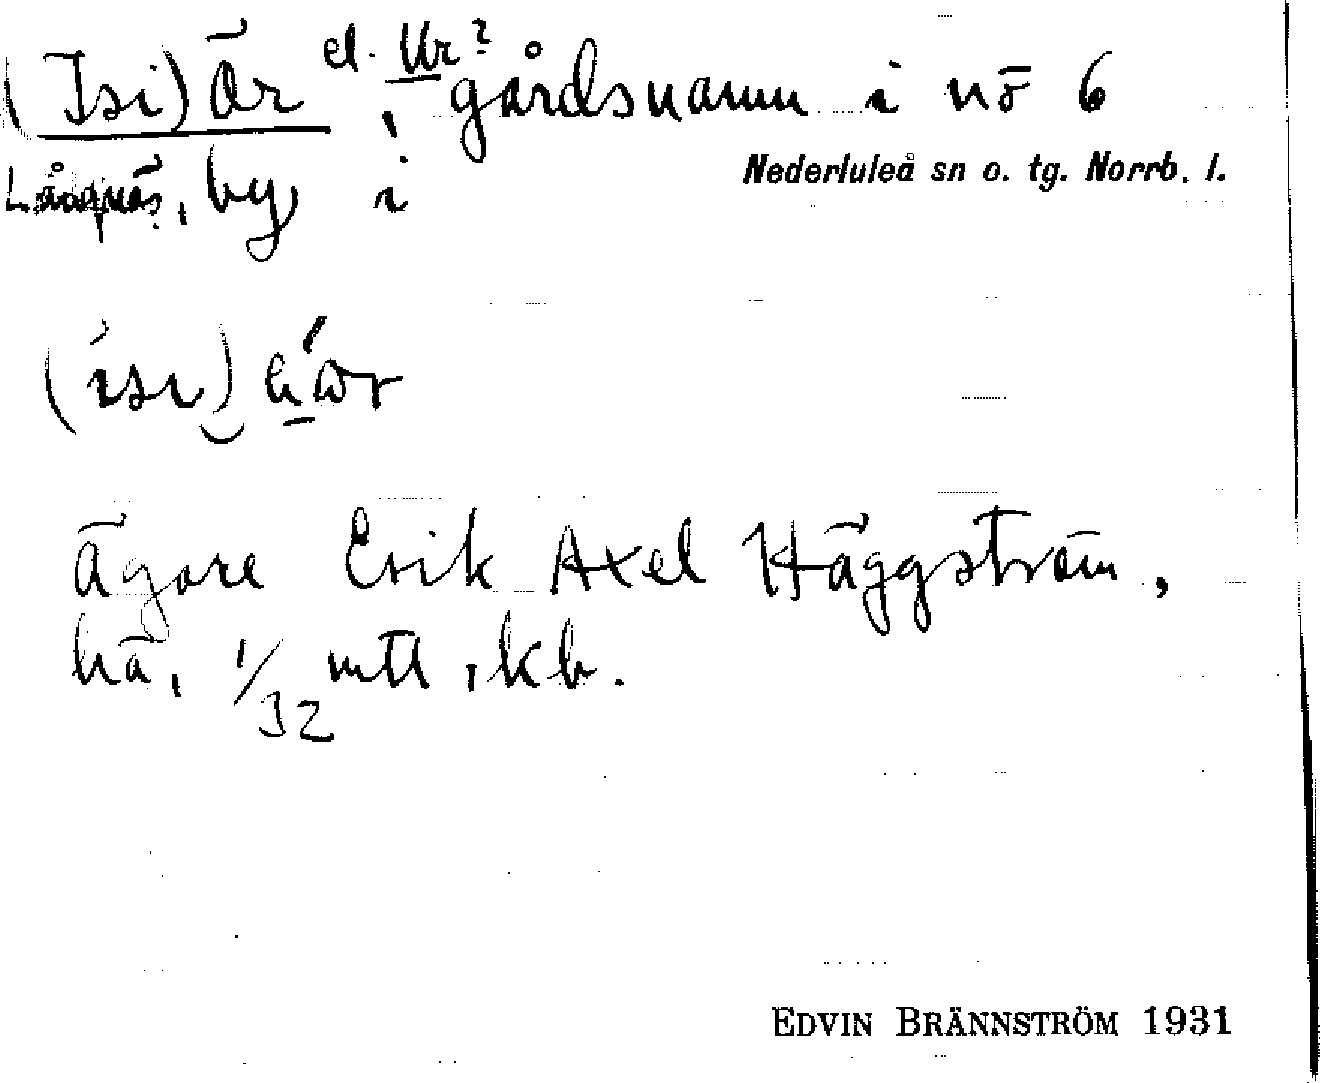 (Isi)Är el. Ur? , gårdsnamn i nö 6
Långnäs, by i Nederluleå sn o. tg. Norrb. l.
(isi)
ägare Erik Axel Häggström,
hä, 1/32 mtl, kb.
EDVIN BRÄNNSTRÖM 1931